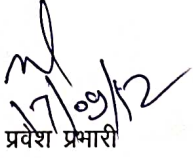 17/09/12
प्रवेश प्रभारी